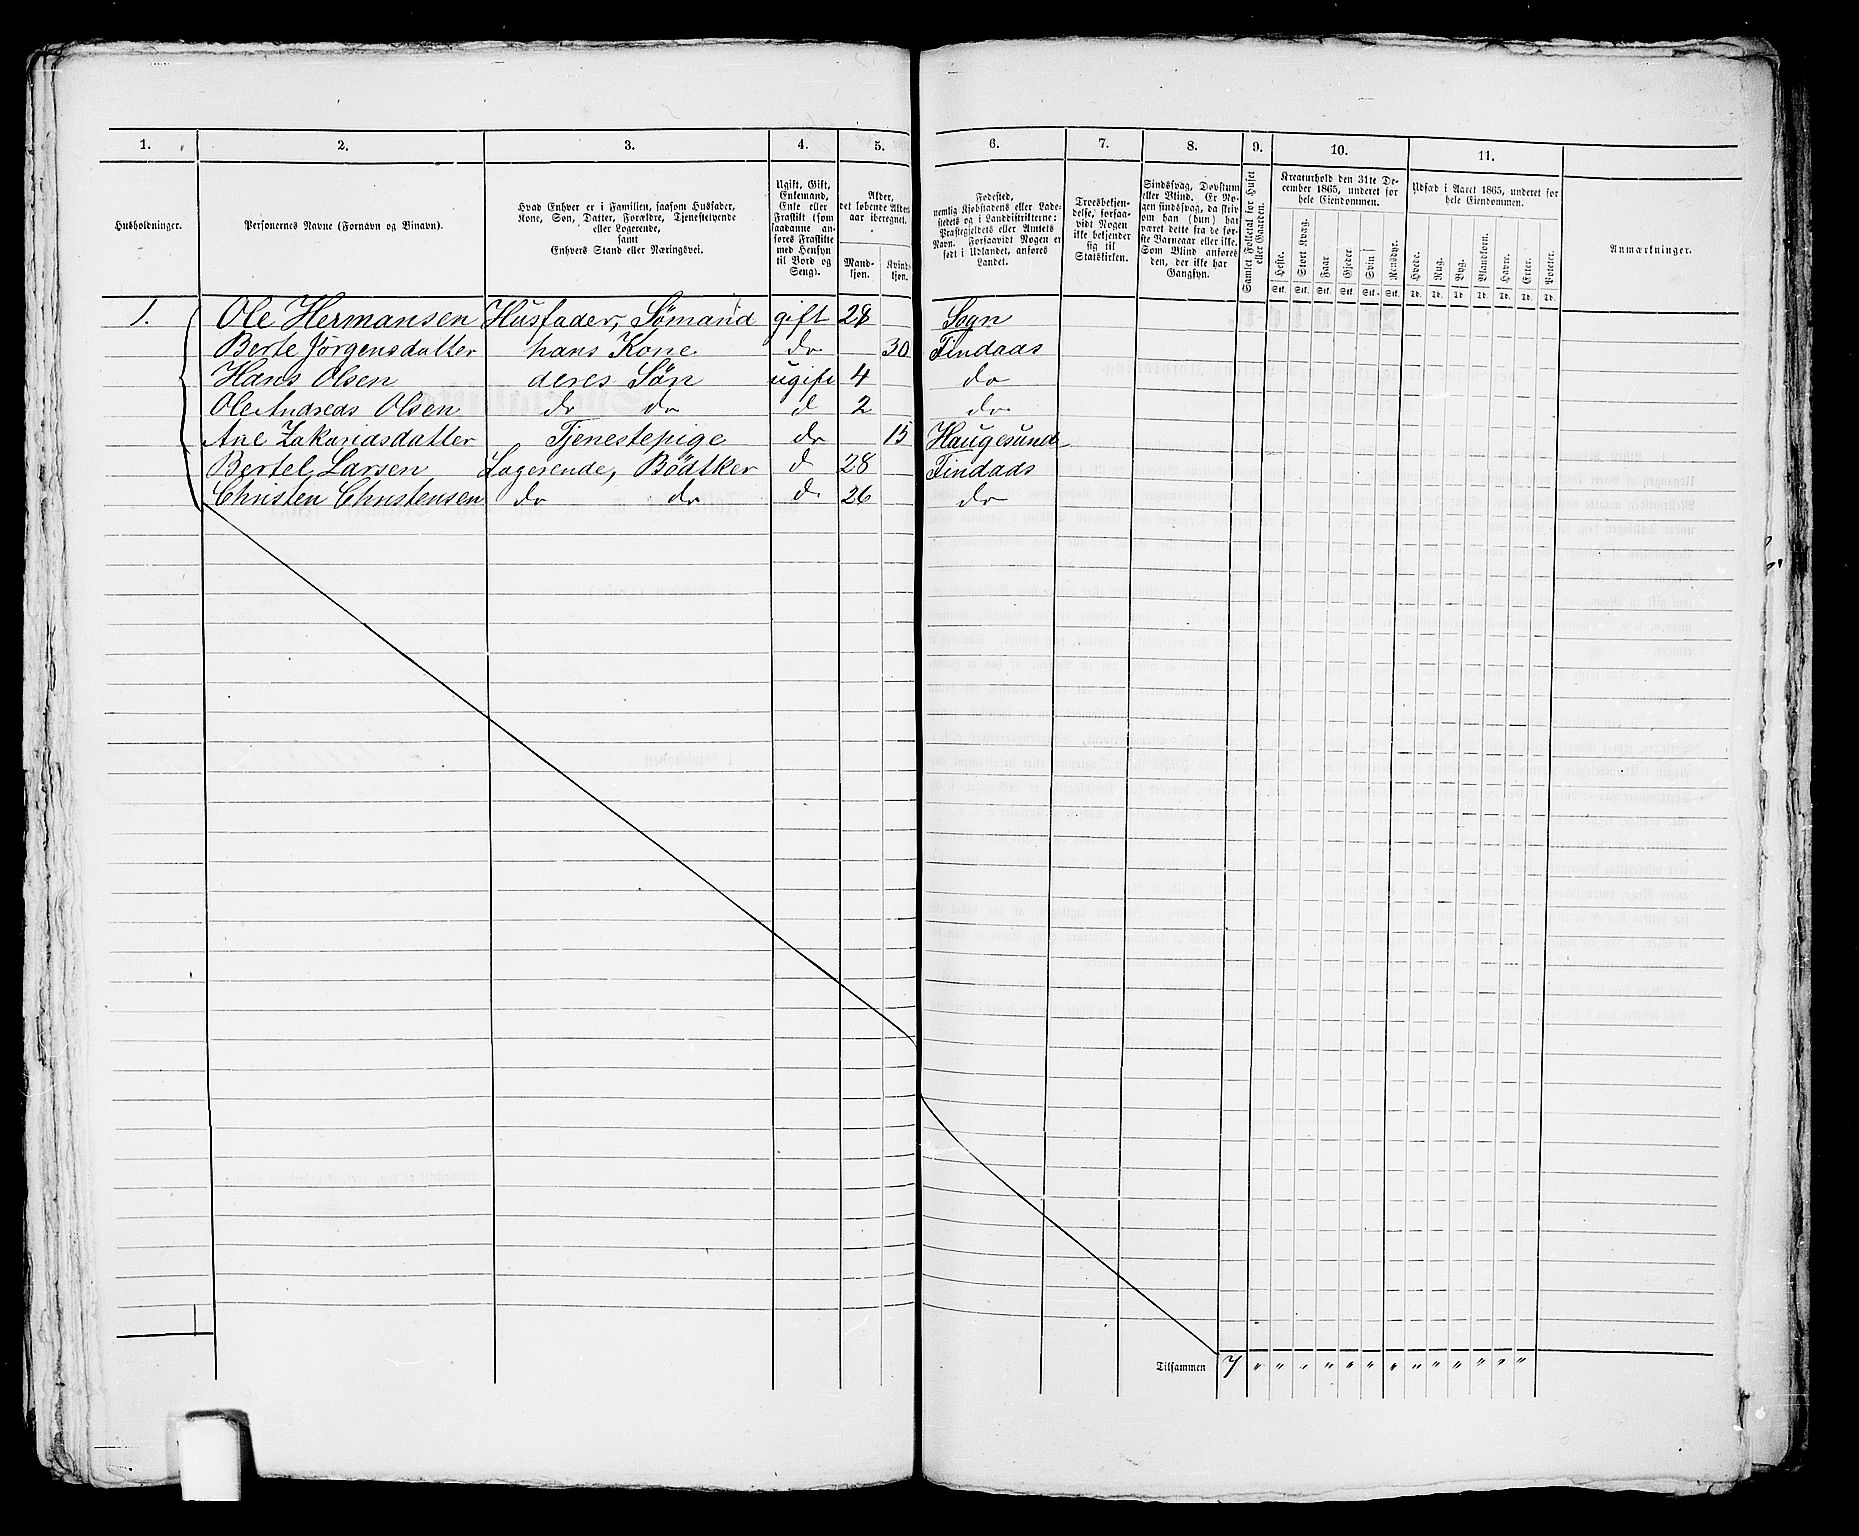 1. 2. 3. 4. 5. 6. 7. 8. 9. 10. 11.
Husholdninger.
Personernes Navne (Fornavn og Binavn).
Hvad Enhver er i Familien, saasom Husfader,
Kone, Søn, Datter, Forældre, Tjenestetyende
eller Logerende,
samt
Enhvers Stand eller Næringsvei.
Ugift, Gift,
Enkemand,
Enke eller
Fraskilt (som
saadanne an-
føres Fraskilte
med Hensyn
til Bord og
Seng).
Alder,
det løbende Alders-
aar iberegnet.
Mand-
kjøn.
Kvind-
kjøn.
Fødested,
nemlig Kjøbstadens eller Lade-
stedets og i Landdistrikterne:
Præstegjeldets eller Amtets
Navn. Forsaavidt Nogen er
født i Udlandet, anføres
Landet.
Troesbekjen-
delse, forsaa-
vidt Nogen
ikke bekjender
sig til
Statskirken.
Sindssvag, Døvstum
eller Blind. Er No-
gen sindssvag, da skriv
om han (hun) har
været dette fra de før-
ste Barneaar eller ikke.
Som Blind anføres
den, der ikke har
Gangsyn.
Samlet Folketal for Huset
eller Gaarden.
Kreaturhold den 31te De-
cember 1865, underet for
hele Eiendommen.
Heste. Stort Kvæg. Faar. Gjeder. Svin. Rensdyr.
Stk. Stk. Stk. Stk. Stk. Stk.
Udsæd i Aaret 1865, underet for
hele Eiendommen.
Hvede. Rug. Byg. Blandkorn. Havre. Erter. Poteter.
Td. Td. Td. Td. Td. Td. Td.
Anmærkninger.
1. Ole Hermansen Husfader, Sømand gift 28 Sogn
Berte Jørgensdatter hans Kone do 30 Findaas
Hans Olsen deres Søn ugift 4 do
Ole Andreas Olsen do do d 2 do
Ane Zakariasdatter Tjenestepige do 15 Haugesund
Bertel Larsen Logerende, Bødtker d 28 Findaas
Christen Christensen do do d 26 do
Tilsammen 7 " " " " " " " " " " " " "